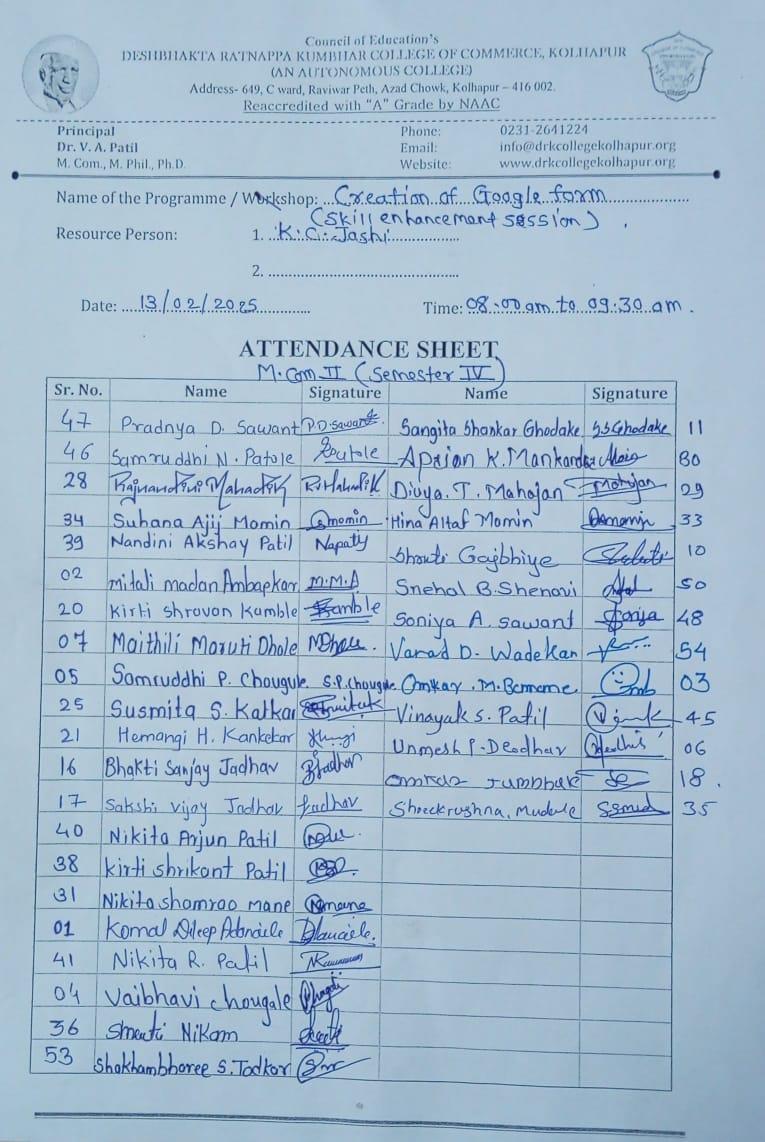 Council of Education's
DESHBHAKTA RATNAPPA KUMBHAR COLLEGE OF COMMERCE, KOLHAPUR
(AN AUTONOMOUS COLLEGE)
Address- 649, C ward, Raviwar Peth, Azad Chowk, Kolhapur – 416 002.
Reaccredited with "A" Grade by NAAC
Principal Phone: 0231-2641224
Dr. V. A. Patil Email: info@drkcollegekolhapur.org
M. Com., M. Phil., Ph.D. Website: www.drkcollegekolhapur.org
Name of the Programme / Workshop: Creation of Google form
(Skill enhancement session)
Resource Person: 1. K. C. Jashi
2.
Date: 13/02/2025 Time: 08:00 am to 09:30 am.
ATTENDANCE SHEET
M.Com II (Semester IV)
Sr. No. Name Signature Name Signature
47 Pradnya D. Sawant P.D.Sawant Sangita Shankar Ghodake S.S.Ghodake 11
46 Samruddhi N. Patole Patole K. 30
28 Rajnandini Mahadik R.Mahadik Divya. T. Mahajan Mahajan 29
34 Suhana Ajij Momin Smomin Hina Altaf Momin 33
39 Nandini Akshay Patil Napatil Shruti Gajbhiye 10
02 mitali madan Ambapkar M.M.A Snehal B. Shenavi 50
20 Kirti shravan Kamble Kamble Soniya A. sawant Soniya 48
07 Maithili Maruti Dhole MDhole. Varad D. Wadekar 54
05 Samruddhi P. Chougule S.P.Chougule Omkar. M. 03
25 Susmita S. Katkar Vinayak s. Patil 45
21 Hemangi H. Kankekar Unmesh P. Deodhar 06
16 Bhakti Sanjay Jadhav Jadhav 18.
17 Sakshi vijay Jadhav Jadhav Shreekrushna, Mudale 35
40 Nikita Arjun Patil
38 Kirti shrikant Patil
31 Nikita shamrao mane mane
01 Komal Dileep
41 Nikita R. Patil
04 Vaibhavi chougale
36 Smruti Nikam
53 Shakhambharee S. Todkar